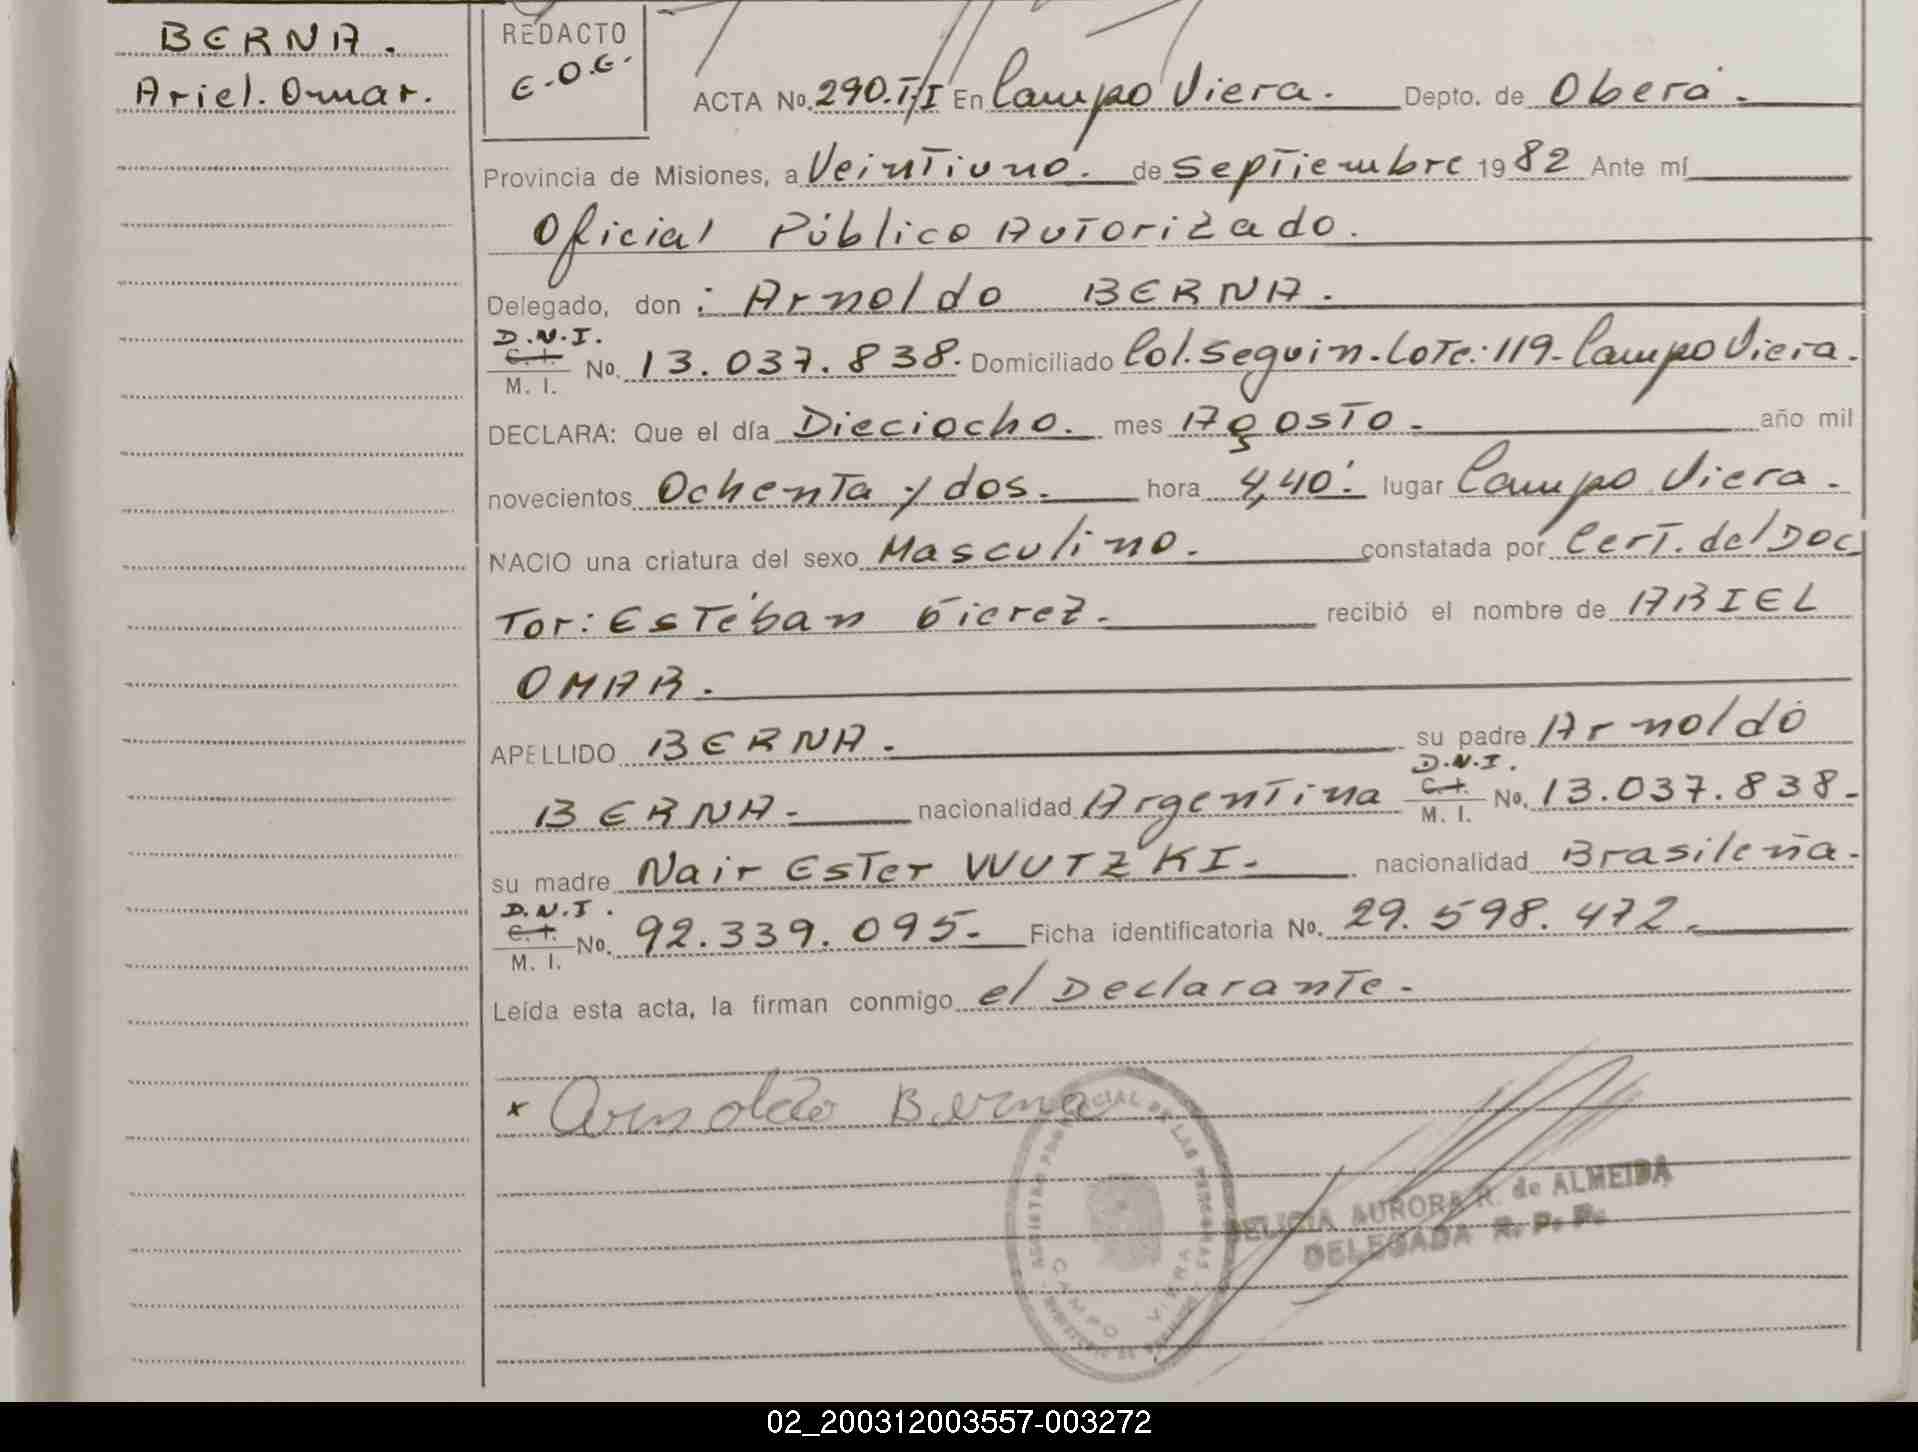 BERNA.
Ariel. Omar.
REDACTO
E.O.E.
ACTA No. 290.T/I En Campo Viera. Depto. de Oberá.
Provincia de Misiones, a Veintiuno. de septiembre 1982 Ante mí
Oficial Público Autorizado.
Delegado, don : Arnoldo BERNA.
D.N.I.
C. I.
M. I.
No. 13.037.838. Domiciliado Col. Seguin. Lote: 119- Campo Viera.
DECLARA: Que el día Dieciocho. mes Agosto. año mil
novecientos Ochenta y dos. hora 4,40'. lugar Campo Viera.
NACIO una criatura del sexo Masculino. constatada por Cert. del Doc
tor: Estéban Gierez. recibió el nombre de ARIEL
OMAR.
APELLIDO BERNA. su padre Arnoldo
D.N.I.
BERNA. nacionalidad Argentina C. I. M. I. No. 13.037.838.
su madre Nair Ester WUTZKI. nacionalidad Brasileña.
D.N.I.
C. I.
M. I.
No. 92.339.095. Ficha identificatoria No. 29.598.472.
Leída esta acta, la firman conmigo el Declarante.
x Arnoldo Berna
REGISTRO PROVINCIAL DE LAS PERSONAS
CAMPO VIERA
DELICIA AURORA R. de ALMEIDA
DELEGADA R. P. P.
02_200312003557-003272